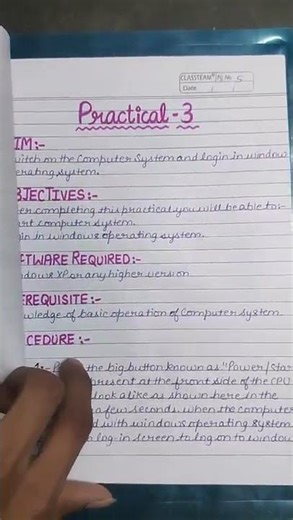 CLASSTEAM® Pg No. 5
Date / /
Practical-3
IM:-
witch on the Computer System and login in window
erating system.
BJECTIVES:-
er completing this practical you will be able to:-
rt computer system.
gin in windows operating system.
FTWARE REQUIRED:-
ndows XP or any higher version
EREQUISITE:-
owledge of basic operation of Computer System
CEDURE:-
1:- the big button known as "Power/Star
present at the front side of the CPU
look alike as shown here in the
a few seconds. when the computer
d with windows operating system
log-in screen to log on to window